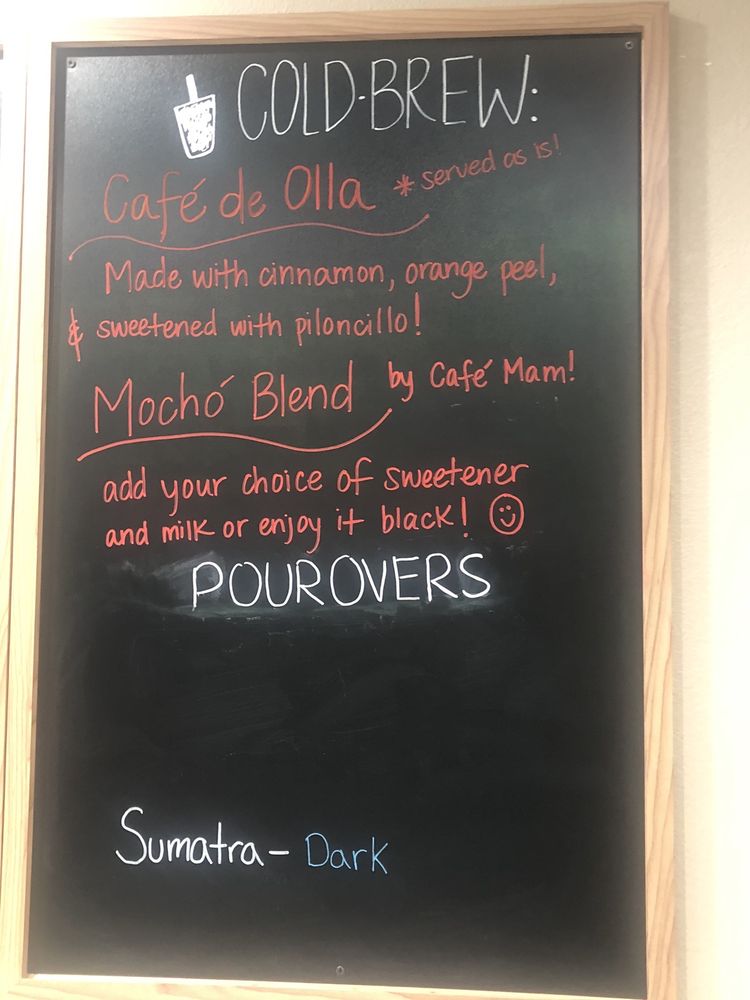 COLD-BREW:
Café de Olla * served as is!
Made with cinnamon, orange peel,
& sweetened with piloncillo!
Mochó Blend by Café Mam!
add your choice of sweetener
and milk or enjoy it black!
POUROVERS
Sumatra- Dark